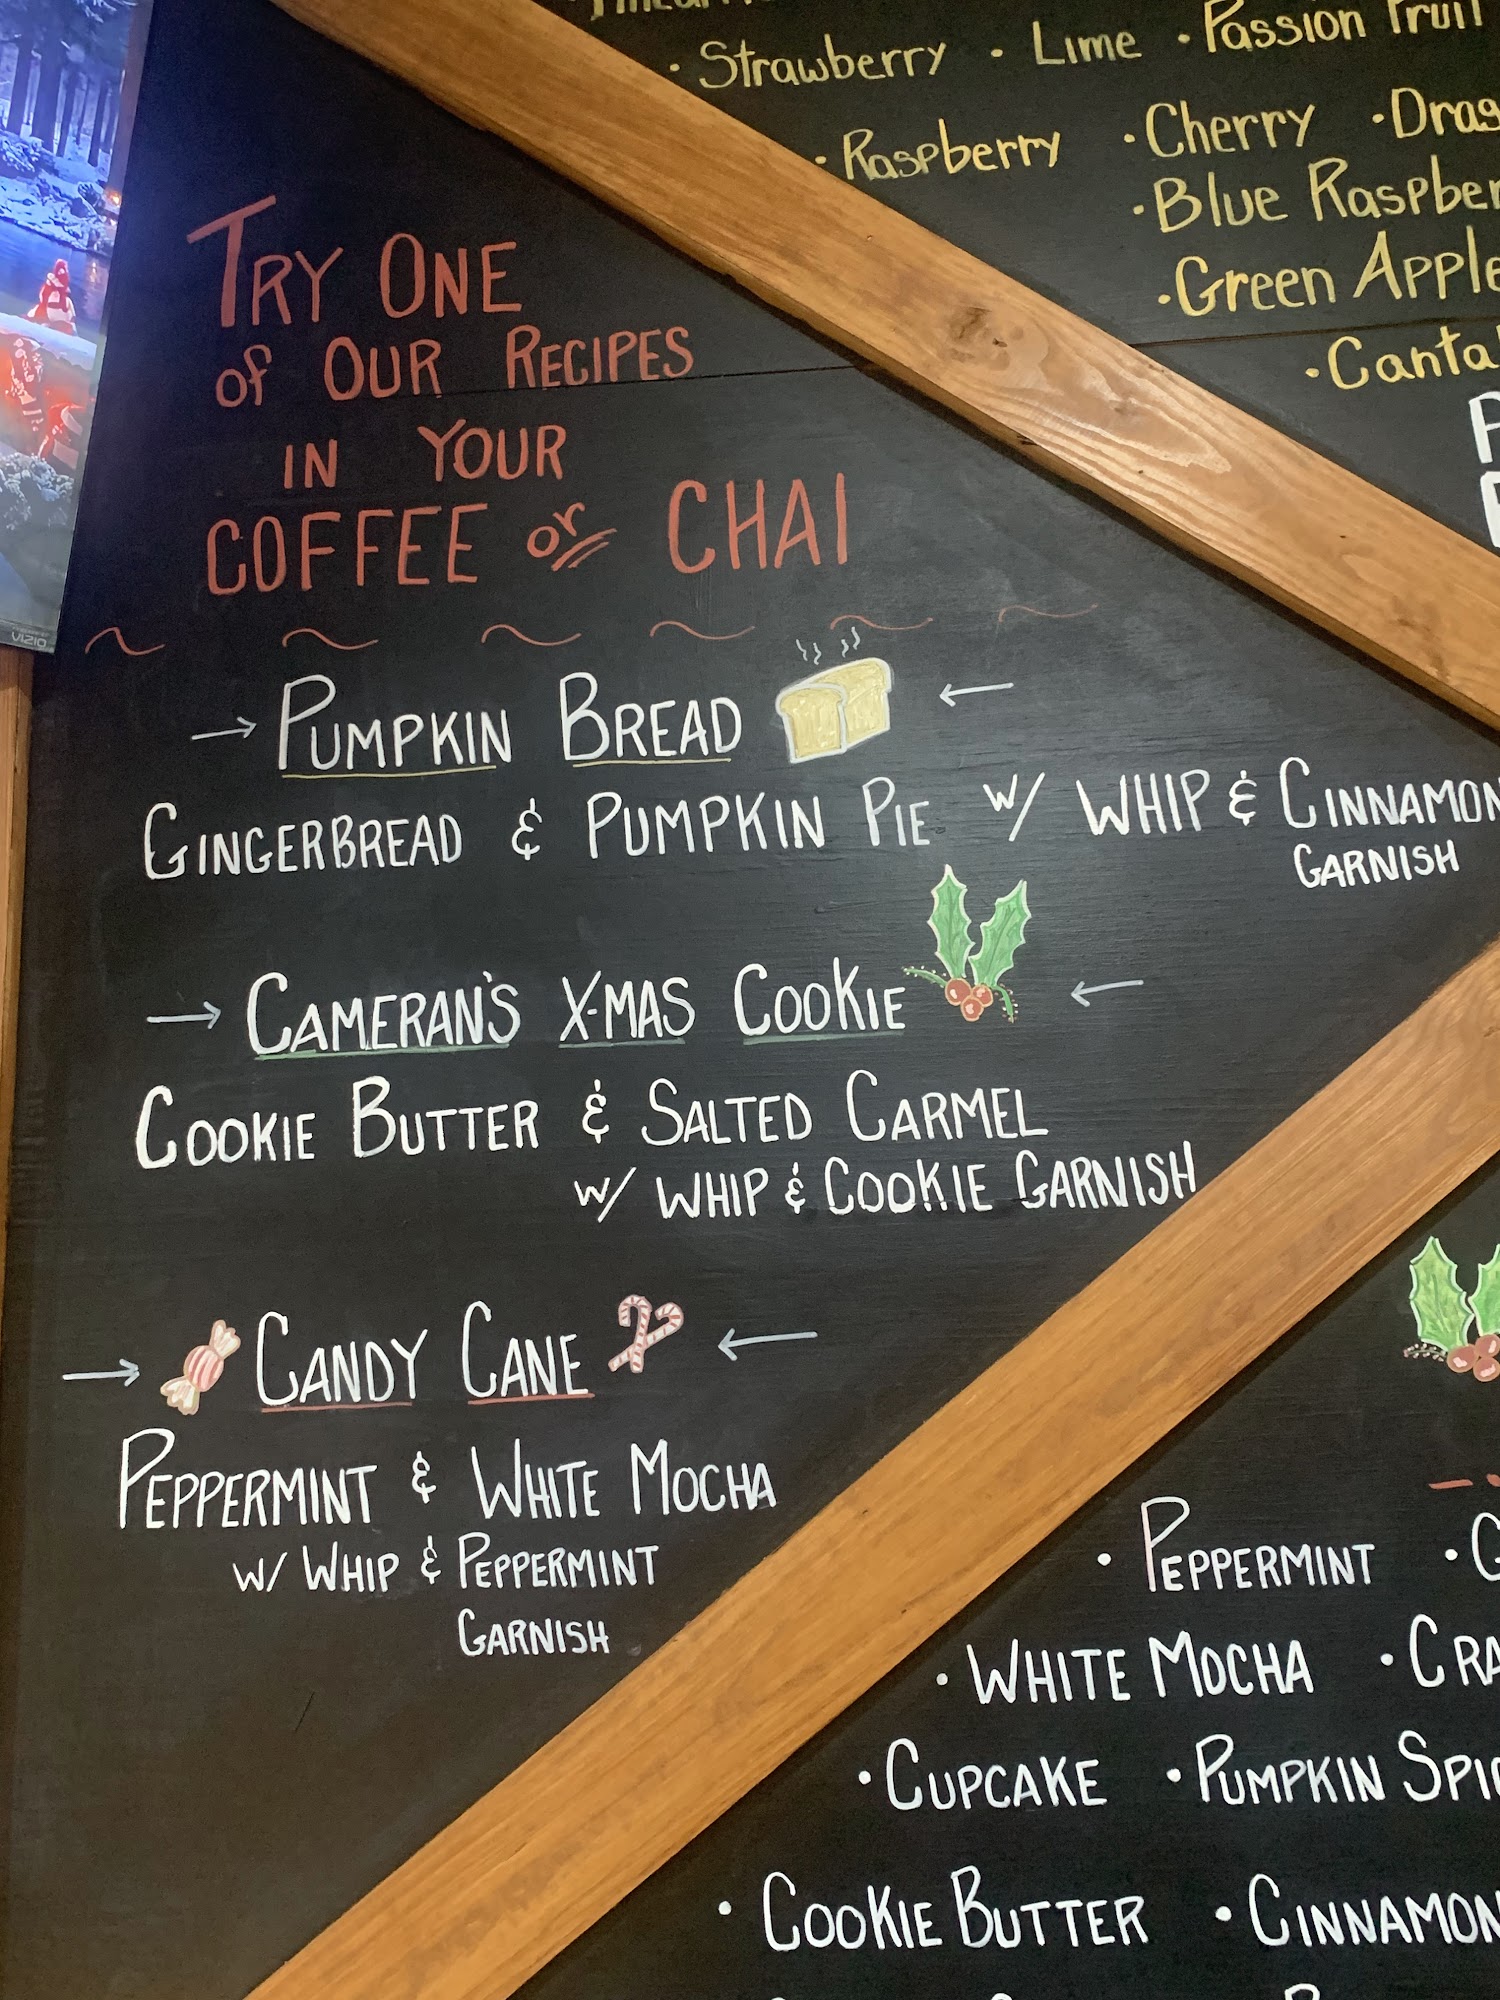 Strawberry · Lime · Passion Fruit
· Raspberry · Cherry
· Blue
· Green Apple
TRY ONE
of OUR RECIPES
IN YOUR
COFFEE or CHAI
VIZIO
→ PUMPKIN BREAD ←
GINGERBREAD & PUMPKIN PIE w/ WHIP & CINNAMON
GARNISH
→ CAMERAN'S X-MAS COOKIE ←
COOKIE BUTTER & SALTED CARMEL
w/ WHIP & COOKIE GARNISH
→ CANDY CANE ←
PEPPERMINT & WHITE MOCHA
w/ WHIP & PEPPERMINT
GARNISH
· PEPPERMINT
· WHITE MOCHA
· CUPCAKE · PUMPKIN
· COOKIE BUTTER · CINNAMON